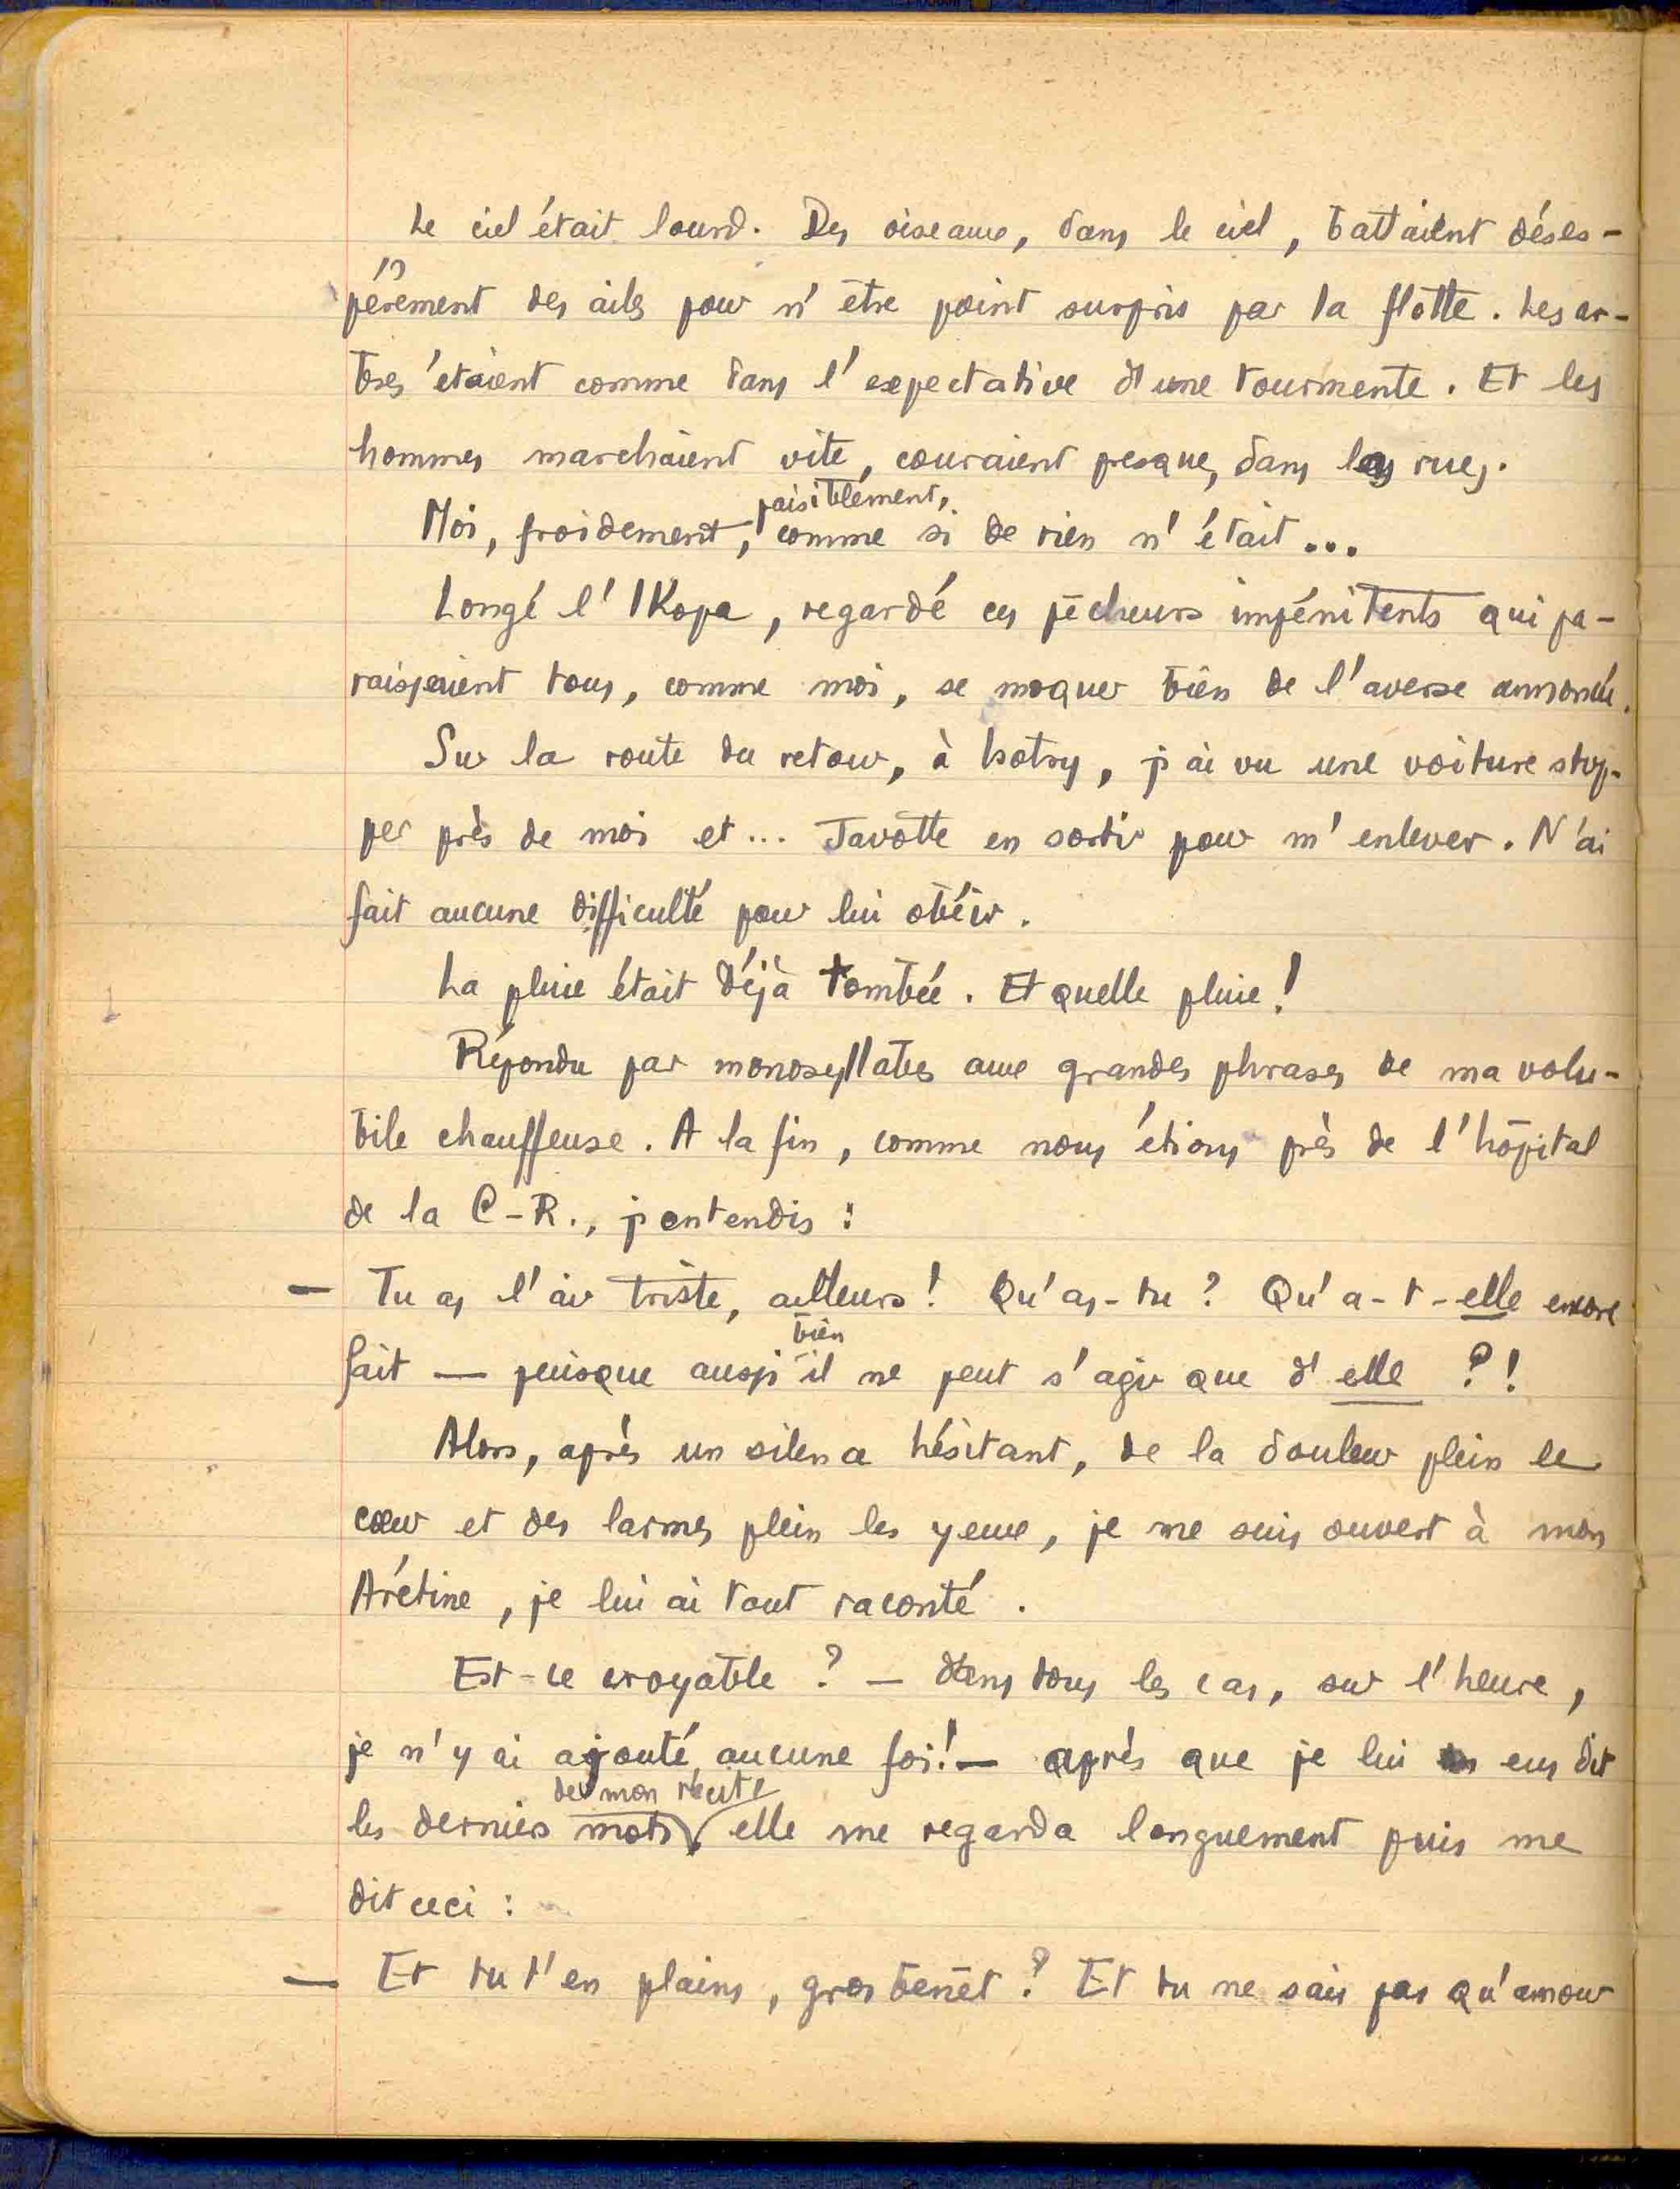 Le ciel était lourd. Des oiseaux, dans le ciel, battaient déses-
pérément des ailes pour n'être point surpris par la flotte. Les ar-
bres étaient comme dans l'expectative d'une tourmente. Et les
hommes marchaient vite, couraient presque, dans les rues.
Moi, froidement, paisiblement, comme si de rien n'était...
Longé l'Ikopa, regardé ces pêcheurs impénitents qui pa-
raissaient tous, comme moi, se moquer bien de l'averse annoncée.
Sur la route du retour, à Isotry, j'ai vu une voiture stop-
per près de moi et... Javotte en sortir pour m'enlever. N'ai
fait aucune difficulté pour lui obéir.
La pluie était déjà tombée. Et quelle pluie!
Répondu par monosyllabes aux grandes phrases de ma volu-
bile chauffeuse. A la fin, comme nous étions près de l'hôpital
de la C-R., j'entendis :
— Tu as l'air triste, ailleurs! Qu'as-tu? Qu'a-t-elle encore
fait — puisque aussi bien il ne peut s'agir que d'elle ?!
Alors, après un silence hésitant, de la douleur plein le
cœur et des larmes plein les yeux, je me suis ouvert à mon
Arétine, je lui ai tout raconté.
Est-ce croyable? — dans tous les cas, sur l'heure,
je n'y ai ajouté aucune foi! — après que je lui eus dit
les derniers mots de mon récit, elle me regarda longuement puis me
dit ceci :
— Et tu t'en plains, gros benêt? Et tu ne sais pas qu'amour